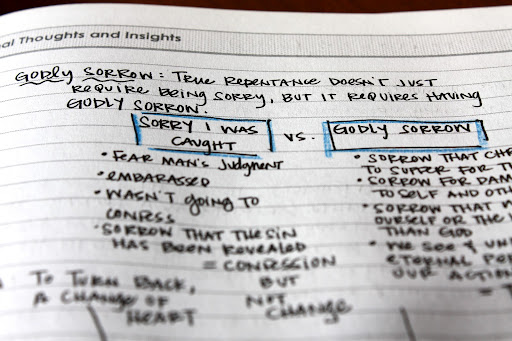 al Thoughts and Insights
GODLY SORROW: TRUE REPENTANCE DOESN'T JUST
REQUIRE BEING SORRY, BUT IT REQUIRES HAVING
GODLY SORROW.
SORRY I WAS
CAUGHT
VS.
GODLY SORROW
• FEAR MAN'S JUDGMENT
• EMBARASSED
• WASN'T GOING TO
CONFESS
• SORROW THAT THE SIN
HAS BEEN REVEALED
= CONFESSION
BUT
NOT
CHANGE
• SORROW THAT CHR
TO SUFFER FOR T
• SORROW FOR DAM
TO SELF AND OTH
• SORROW THAT W
OURSELF OR THE
THAN GOD
• WE SEE & UN
ETERNAL PE
OUR ACTION
TO TURN BACK,
A CHANGE OF
HEART